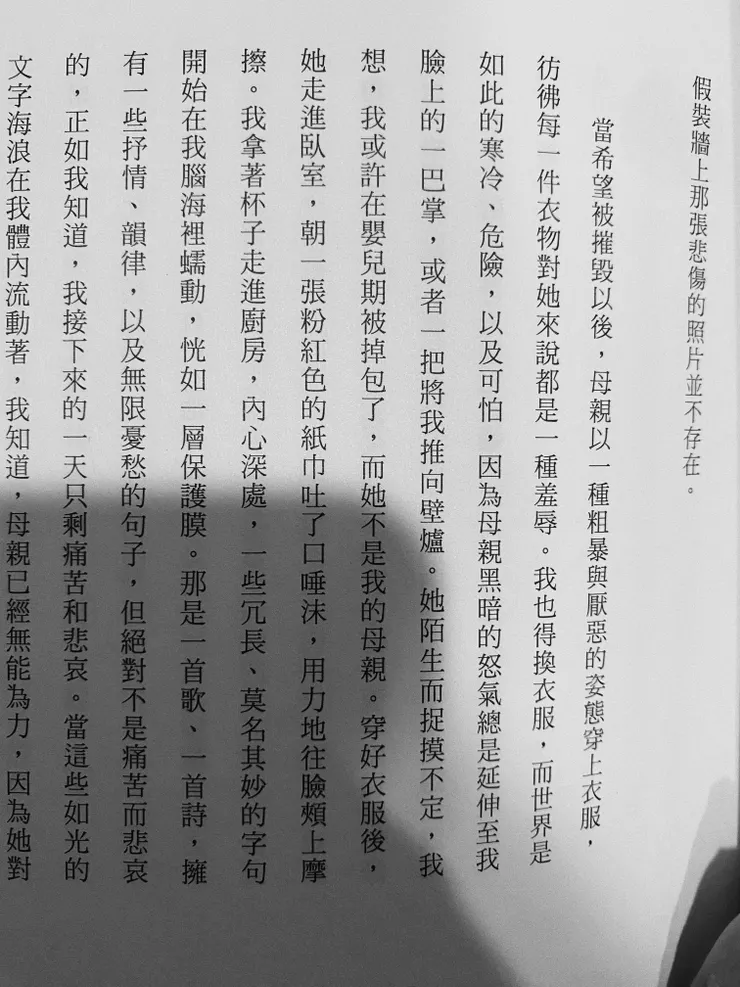 假裝牆上那張悲傷的照片並不存在。
當希望被摧毀以後，母親以一種粗暴與厭惡的姿態穿上衣服，
彷彿每一件衣物對她來說都是一種羞辱。我也得換衣服，而世界是
如此的寒冷、危險，以及可怕，因為母親黑暗的怒氣總是延伸至我
臉上的一巴掌，或者一把將我推向壁爐。她陌生而捉摸不定，我
想，我或許在嬰兒期被掉包了，而她不是我的母親。穿好衣服後，
她走進臥室，朝一張粉紅色的紙巾吐了口唾沫，用力地往臉頰上摩
擦。我拿著杯子走進廚房，內心深處，一些冗長、莫名其妙的字句
開始在我腦海裡蠕動，恍如一層保護膜。那是一首歌、一首詩，擁
有一些抒情、韻律，以及無限憂愁的句子，但絕對不是痛苦而悲哀
的，正如我知道，我接下來的一天只剩痛苦和悲哀。當這些如光的
文字海浪在我體內流動著，我知道，母親已經無能為力，因為她對